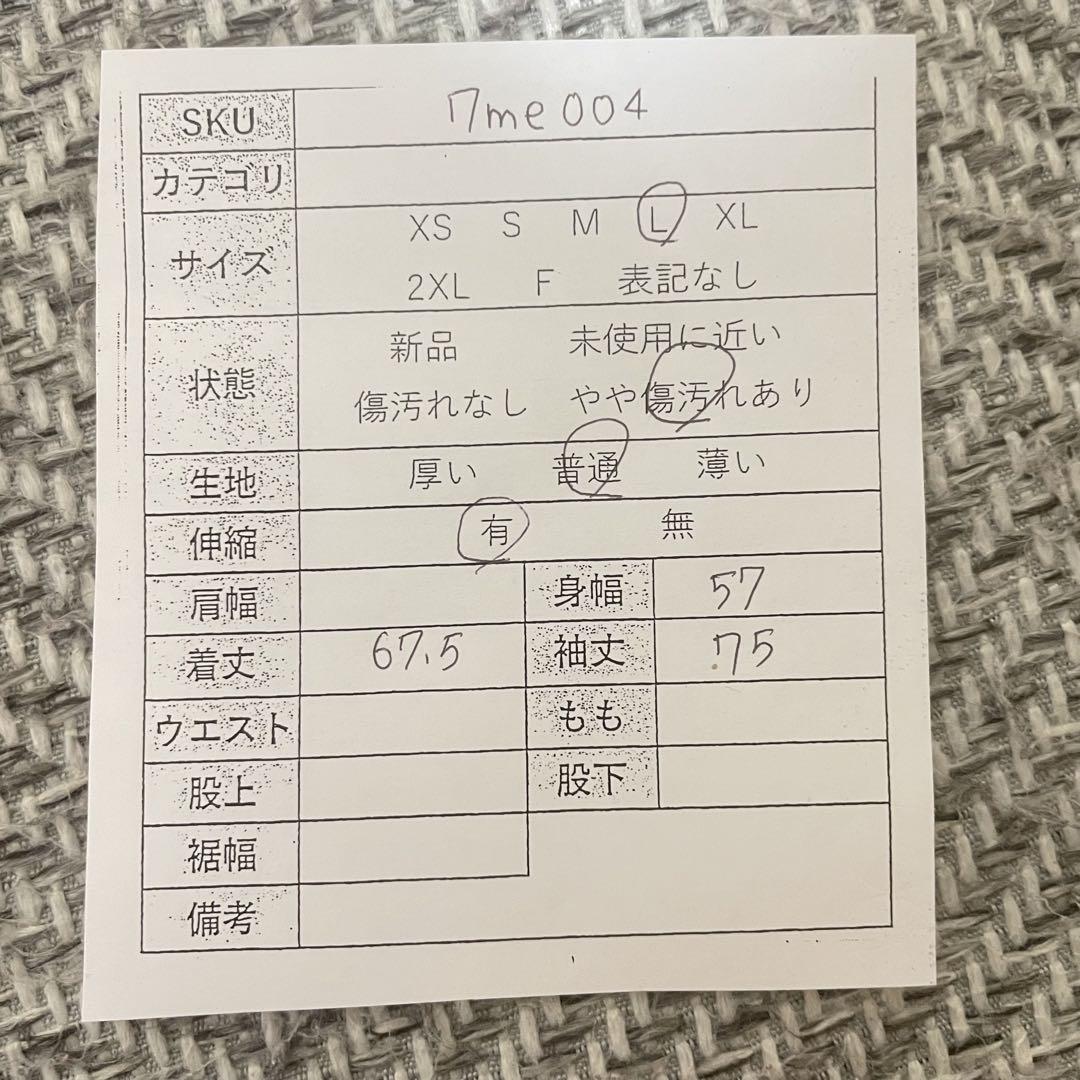 SKU 7me004
カテゴリ
サイズ XS S M L XL
2XL F 表記なし
状態 新品 未使用に近い
傷汚れなし やや傷汚れあり
生地 厚い 普通 薄い
伸縮 有 無
肩幅 身幅 57
着丈 67.5 袖丈 75
ウエスト もも
股上 股下
裾幅
備考